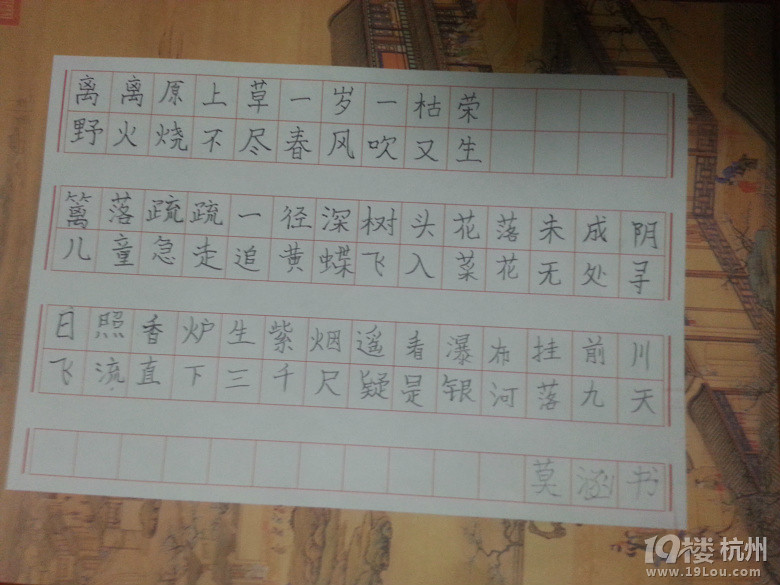 离离原上草一岁一枯荣
野火烧不尽春风吹又生
篱落疏疏一径深树头花落未成阴
儿童急走追黄蝶飞入菜花无处寻
日照香炉生紫烟遥看瀑布挂前川
飞流直下三千尺疑是银河落九天
莫涵书
19楼杭州
www.19Lou.com